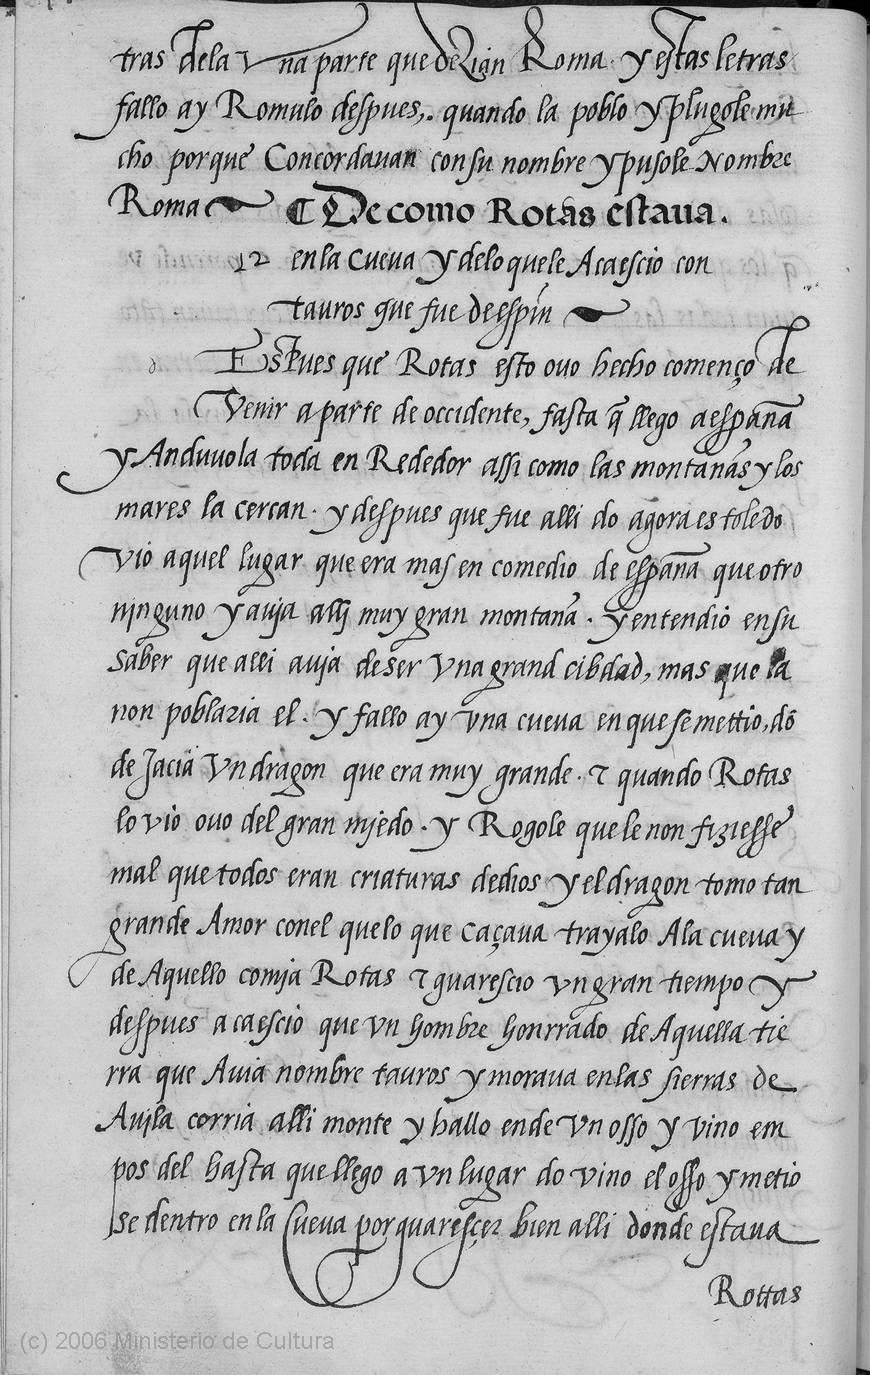 tras dela vna parte que dezian Roma. y estas letras
fallo ay Romulo despues,. quando la poblo y plugole mu
cho porque Concordauan con su nombre y pusole Nombre
Roma ¶ De como Rotas estaua.
12 en la Cueua y delo quele Acaescio con
tauros que fue de espin
Espues que Rotas esto ouo hecho començo de
Venir a parte de occidente, fasta q̃ llego a españa
y Anduuola toda en Rededor assi como las montañas y los
mares la cercan. y despues que fue alli do agora es toledo
vio aquel lugar que era mas en comedio de españa que otro
ninguno y auja allj muy gran montaña. y entendio en su
saber que alli auja de ser Vna grand cibdad, mas que la
non poblaria el. y fallo ay vna cueua en que se mettio, dõ
de Jacia Vn dragon que era muy grande. τ quando Rotas
lo vio ouo del gran mjedo. y Rogole que le non fiziesse
mal que todos eran criaturas de dios y el dragon tomo tan
grande Amor conel quelo que caçaua trayalo Ala cueua y
de Aquello comja Rotas τ guarescio vn gran tiempo y
despues acaescio que vn hombre honrrado de Aquella tie
rra que Auia nombre tauros y moraua en las sierras de
Aujla corria alli monte y hallo ende vn osso y vino em
pos del hasta que llego a vn lugar do vino el osso y metio
se dentro en la Cueua por guaresçer bien alli donde estaua
Rottas
(c) 2006 Ministerio de Cultura